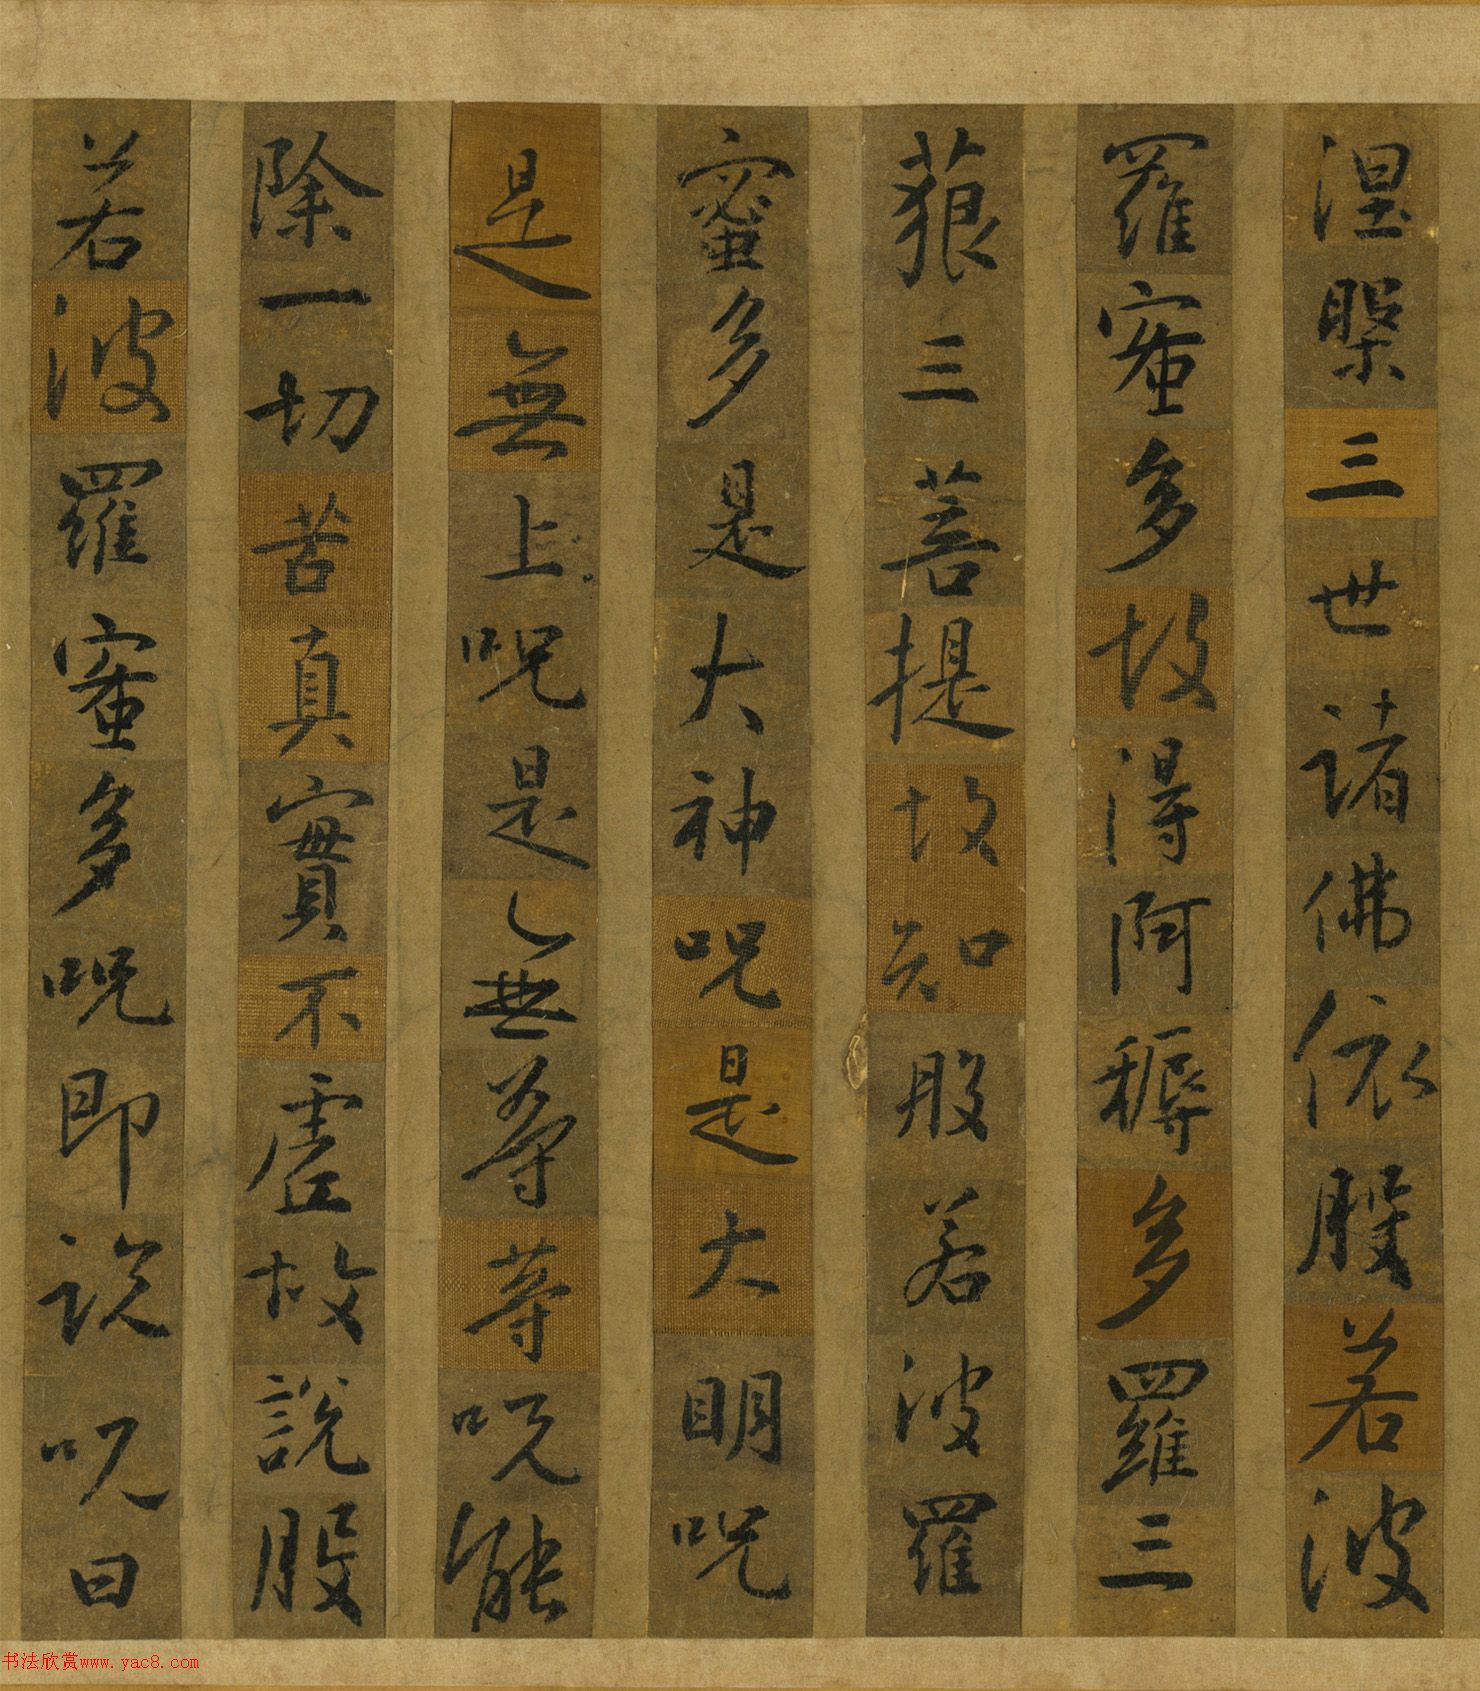 涅槃三世諸佛依般若波
羅蜜多故得阿耨多羅三
藐三菩提故知般若波羅
蜜多是大神呪是大明呪
是無上呪是無等等呪能
除一切苦真實不虛故說般
若波羅蜜多呪即說呪曰
书法欣赏www.yac8.com